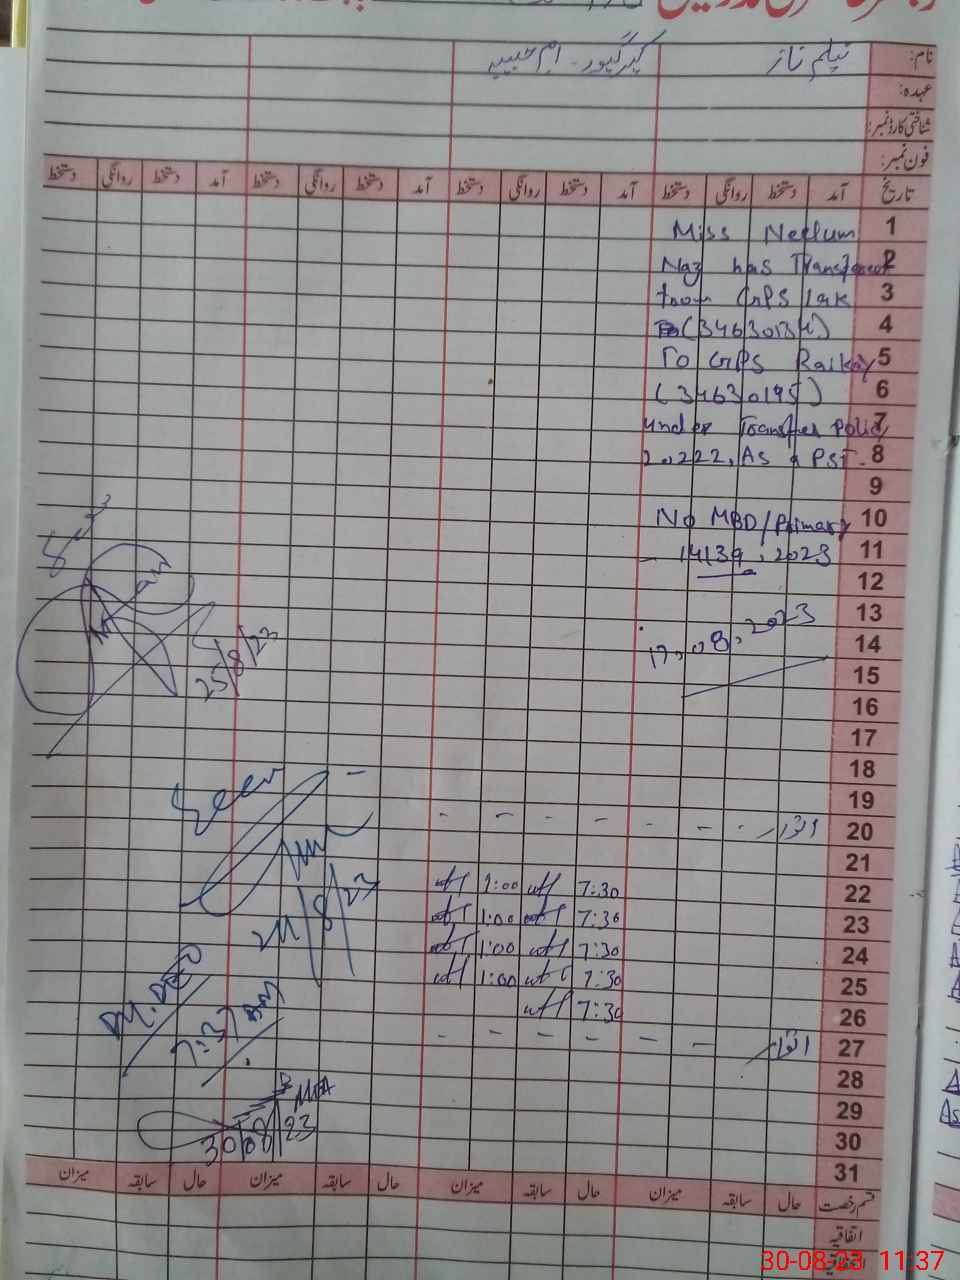 نام: نیلم ناز
عہدہ:
شناختی کارڈ نمبر:
فون نمبر:
تاریخ آمد دستخط روانگی دستخط آمد دستخط روانگی دستخط آمد دستخط روانگی دستخط آمد دستخط روانگی دستخط
1 Miss Neelum
2 Naz has Transfered
3 from GPS
4 (34630134)
5 To GPS
6 (34630195)
7 under Transfer Policy
8 20222, As a PST.
9
10 No MBD/Primary
11 14139, 2023
12
13 17.08.2023
14
15
16
17
18
19
20 اتوار
21
22 7:30 1:00
23 7:30 1:00
24 7:30 1:00
25 7:30 1:00
26 7:30
27 اتوار
28
29
30
31
25/8/23
Seen
Dy. DEO
7:37 am
MEA
30/08/23
قسم رخصت حال سابقہ میزان حال سابقہ میزان حال سابقہ میزان حال سابقہ میزان
اتفاقیہ
30-08-23 11:37